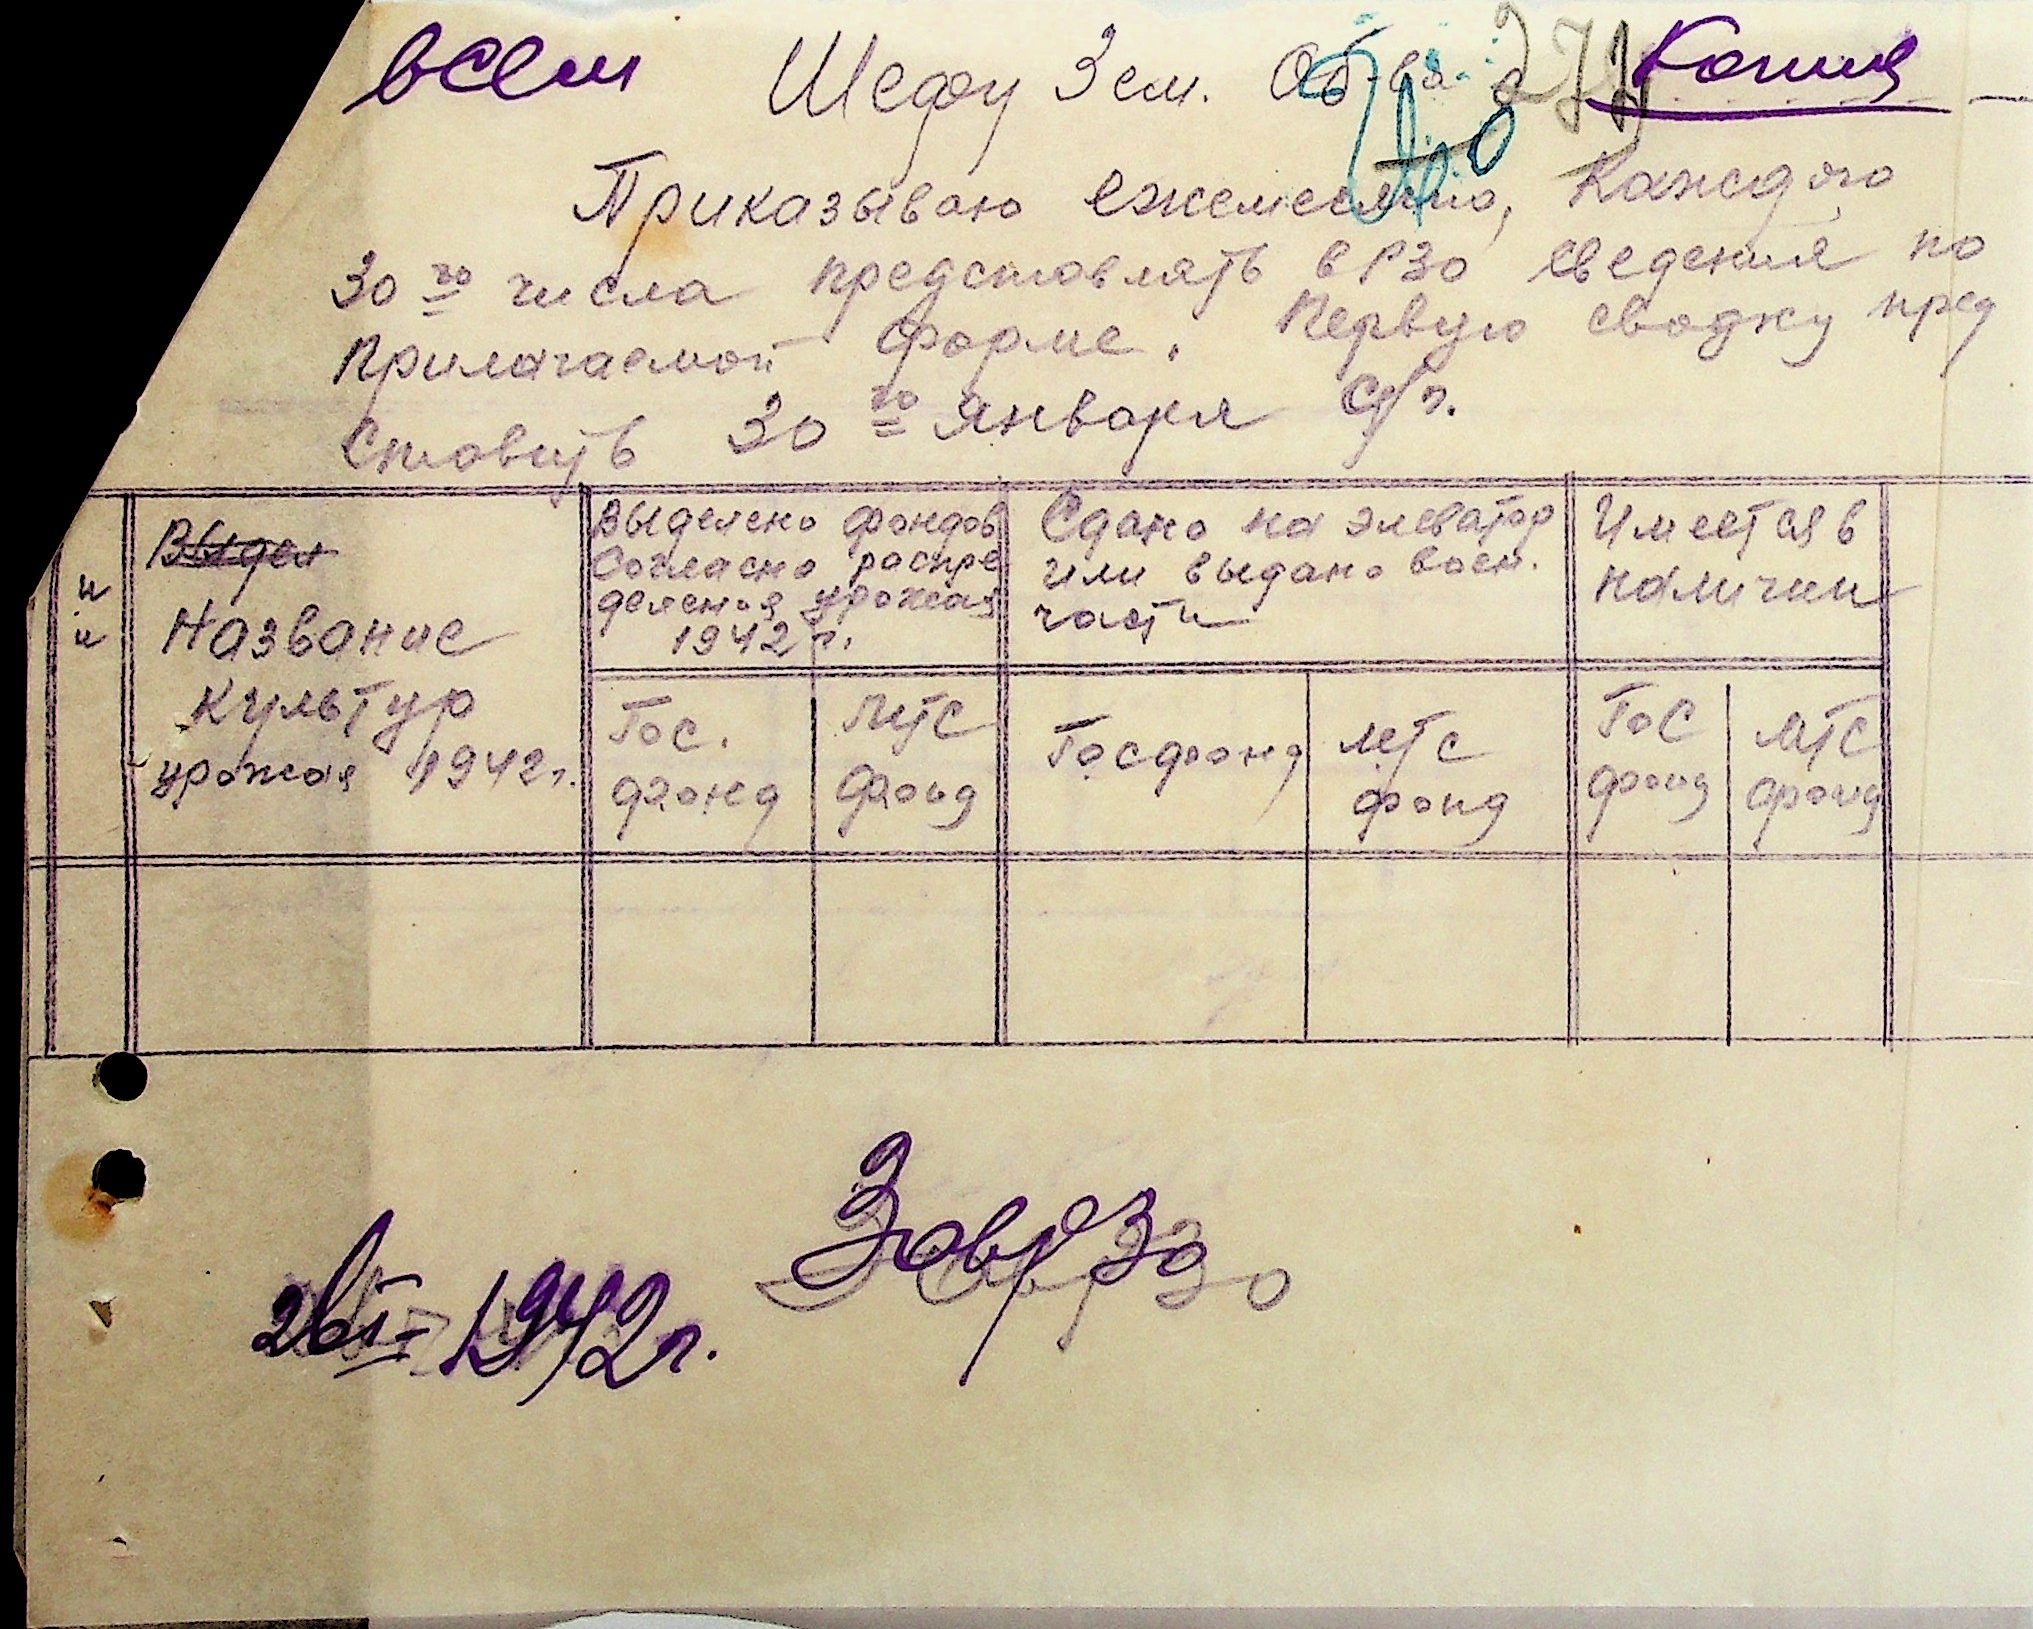 всем Шефу Зем. Об-ва Копия
Приказываю ежемесячно, каждого
30го числа представлять в РЗО сведения по
прилагаемой форме. Первую сводку пред
ставить 30го января с/г.
Выдел
Название
культур
урожая 1942г.
Выделено фондов
согласно распре
деления урожая
1942 г.
Сдано на элеватор
или выдано воен.
части
Имеется в
наличии
Гос.
фонд
МТС
фонд
Госфонд
МТС
фонд
Гос
фонд
МТС
фонд
ЗавРЗО
1942г.